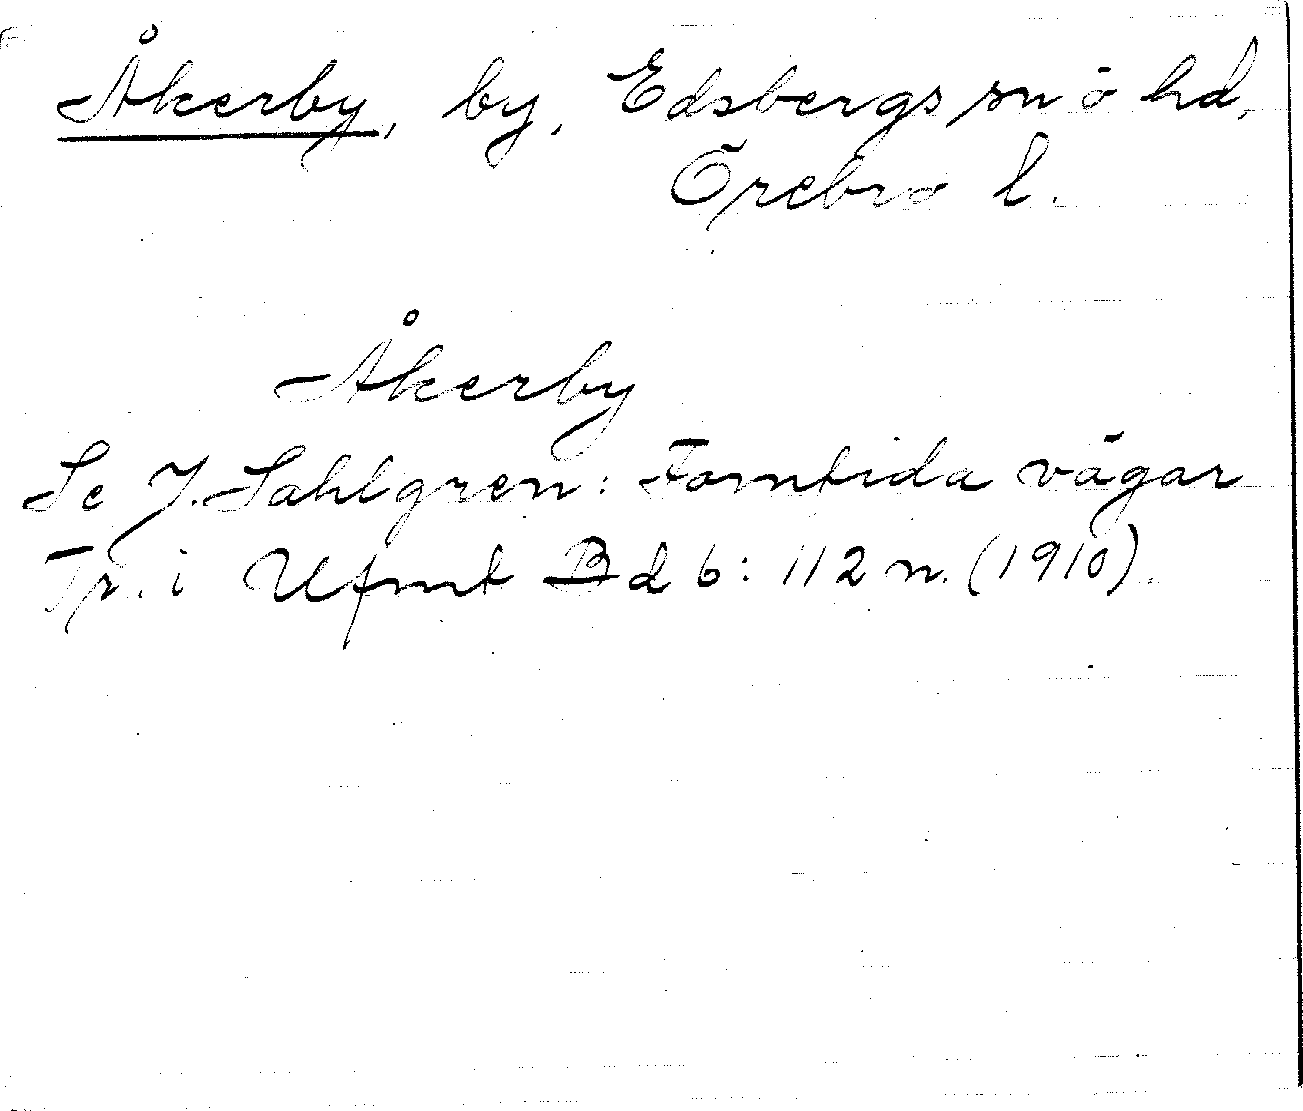 Åkerby, by, Edsbergs sn o hd,
Örebro l.
Åkerby
Se J. Sahlgren: Forntida vägar
Tr. i Ufmt Bd 6: 112 n. (1910).